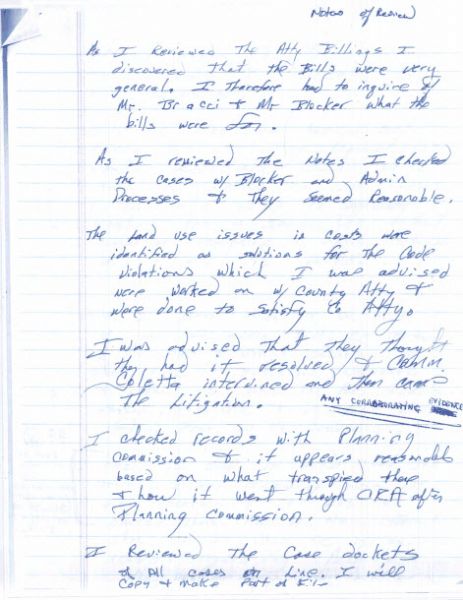 Notes of Review
As I Reviewed The Atty Billings I
discovered that the Bills were very
general. I Therefore had to inquire of
Mr. Bracci & Mr Blocker what the
bills were for.
As I reviewed the Notes I checked
the cases w/ Blocker and Admin
Processes & They Seemed Reasonable.
The land use issues in costs were
identified as solutions for the Code
Violations which I was advised
were worked on w/ County Atty &
were done to satisfy Co Atty.
I was advised That they thought
they had it resolved & Comm.
Coletta intervined and Then came
The Litigation.
ANY CORROBORATING EVIDENCE
I checked records with Planning
commission & it appears reasonable
based on what transpired there
& how it went through CRA after
Planning Commission.
I Reviewed the Case dockets
of All cases on Line. I will
Copy & Make Part of File